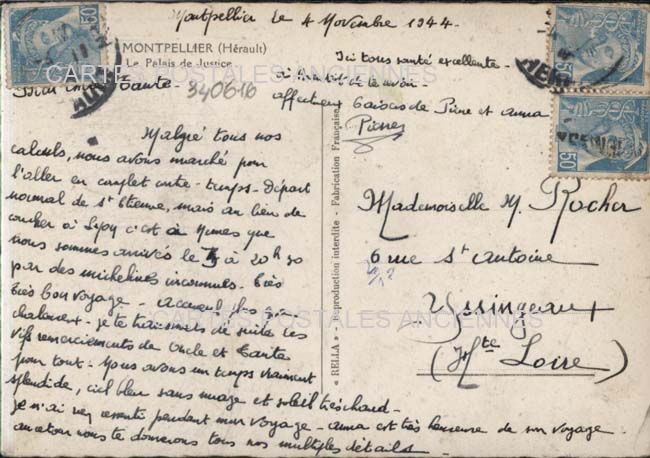 Montpellier le 4 Novembre 1944.
MONTPELLIER (Hérault)
Le Palais de Justice
Ici tous santé excellente.
à bientôt de te voir.
affectueux baisers de Pierre et anna
Pierre
Bien chère Tante.
340616
Malgré tous nos
calculs, nous avons marché pour
l'aller en complet contre-temps. Départ
normal de St Etienne, mais au lieu de
coucher à Lyon c'est à Nimes que
nous sommes arrivés le à 20 h 30
par des michelines inconnues. Très
très bon voyage. accueil plus que
chaleureux. je te transmets de suite les
vifs remerciements de Oncle et Tante
pour tout. Nous avons un temps vraiment
splendide, ciel bleu sans nuage et soleil très chaud.
je n'ai rien ressenti pendant mon voyage. anna est très heureuse de son voyage.
au retour nous te donnerons tous nos multiples détails.
« RELLA » Reproduction interdite - Fabrication Française
Mademoiselle M. Rocher
6 rue St antoine
Yssingeaux
(Hte Loire)
50
50
50
CARTES POSTALES ANCIENNES
CARTES POSTALES ANCIENNES